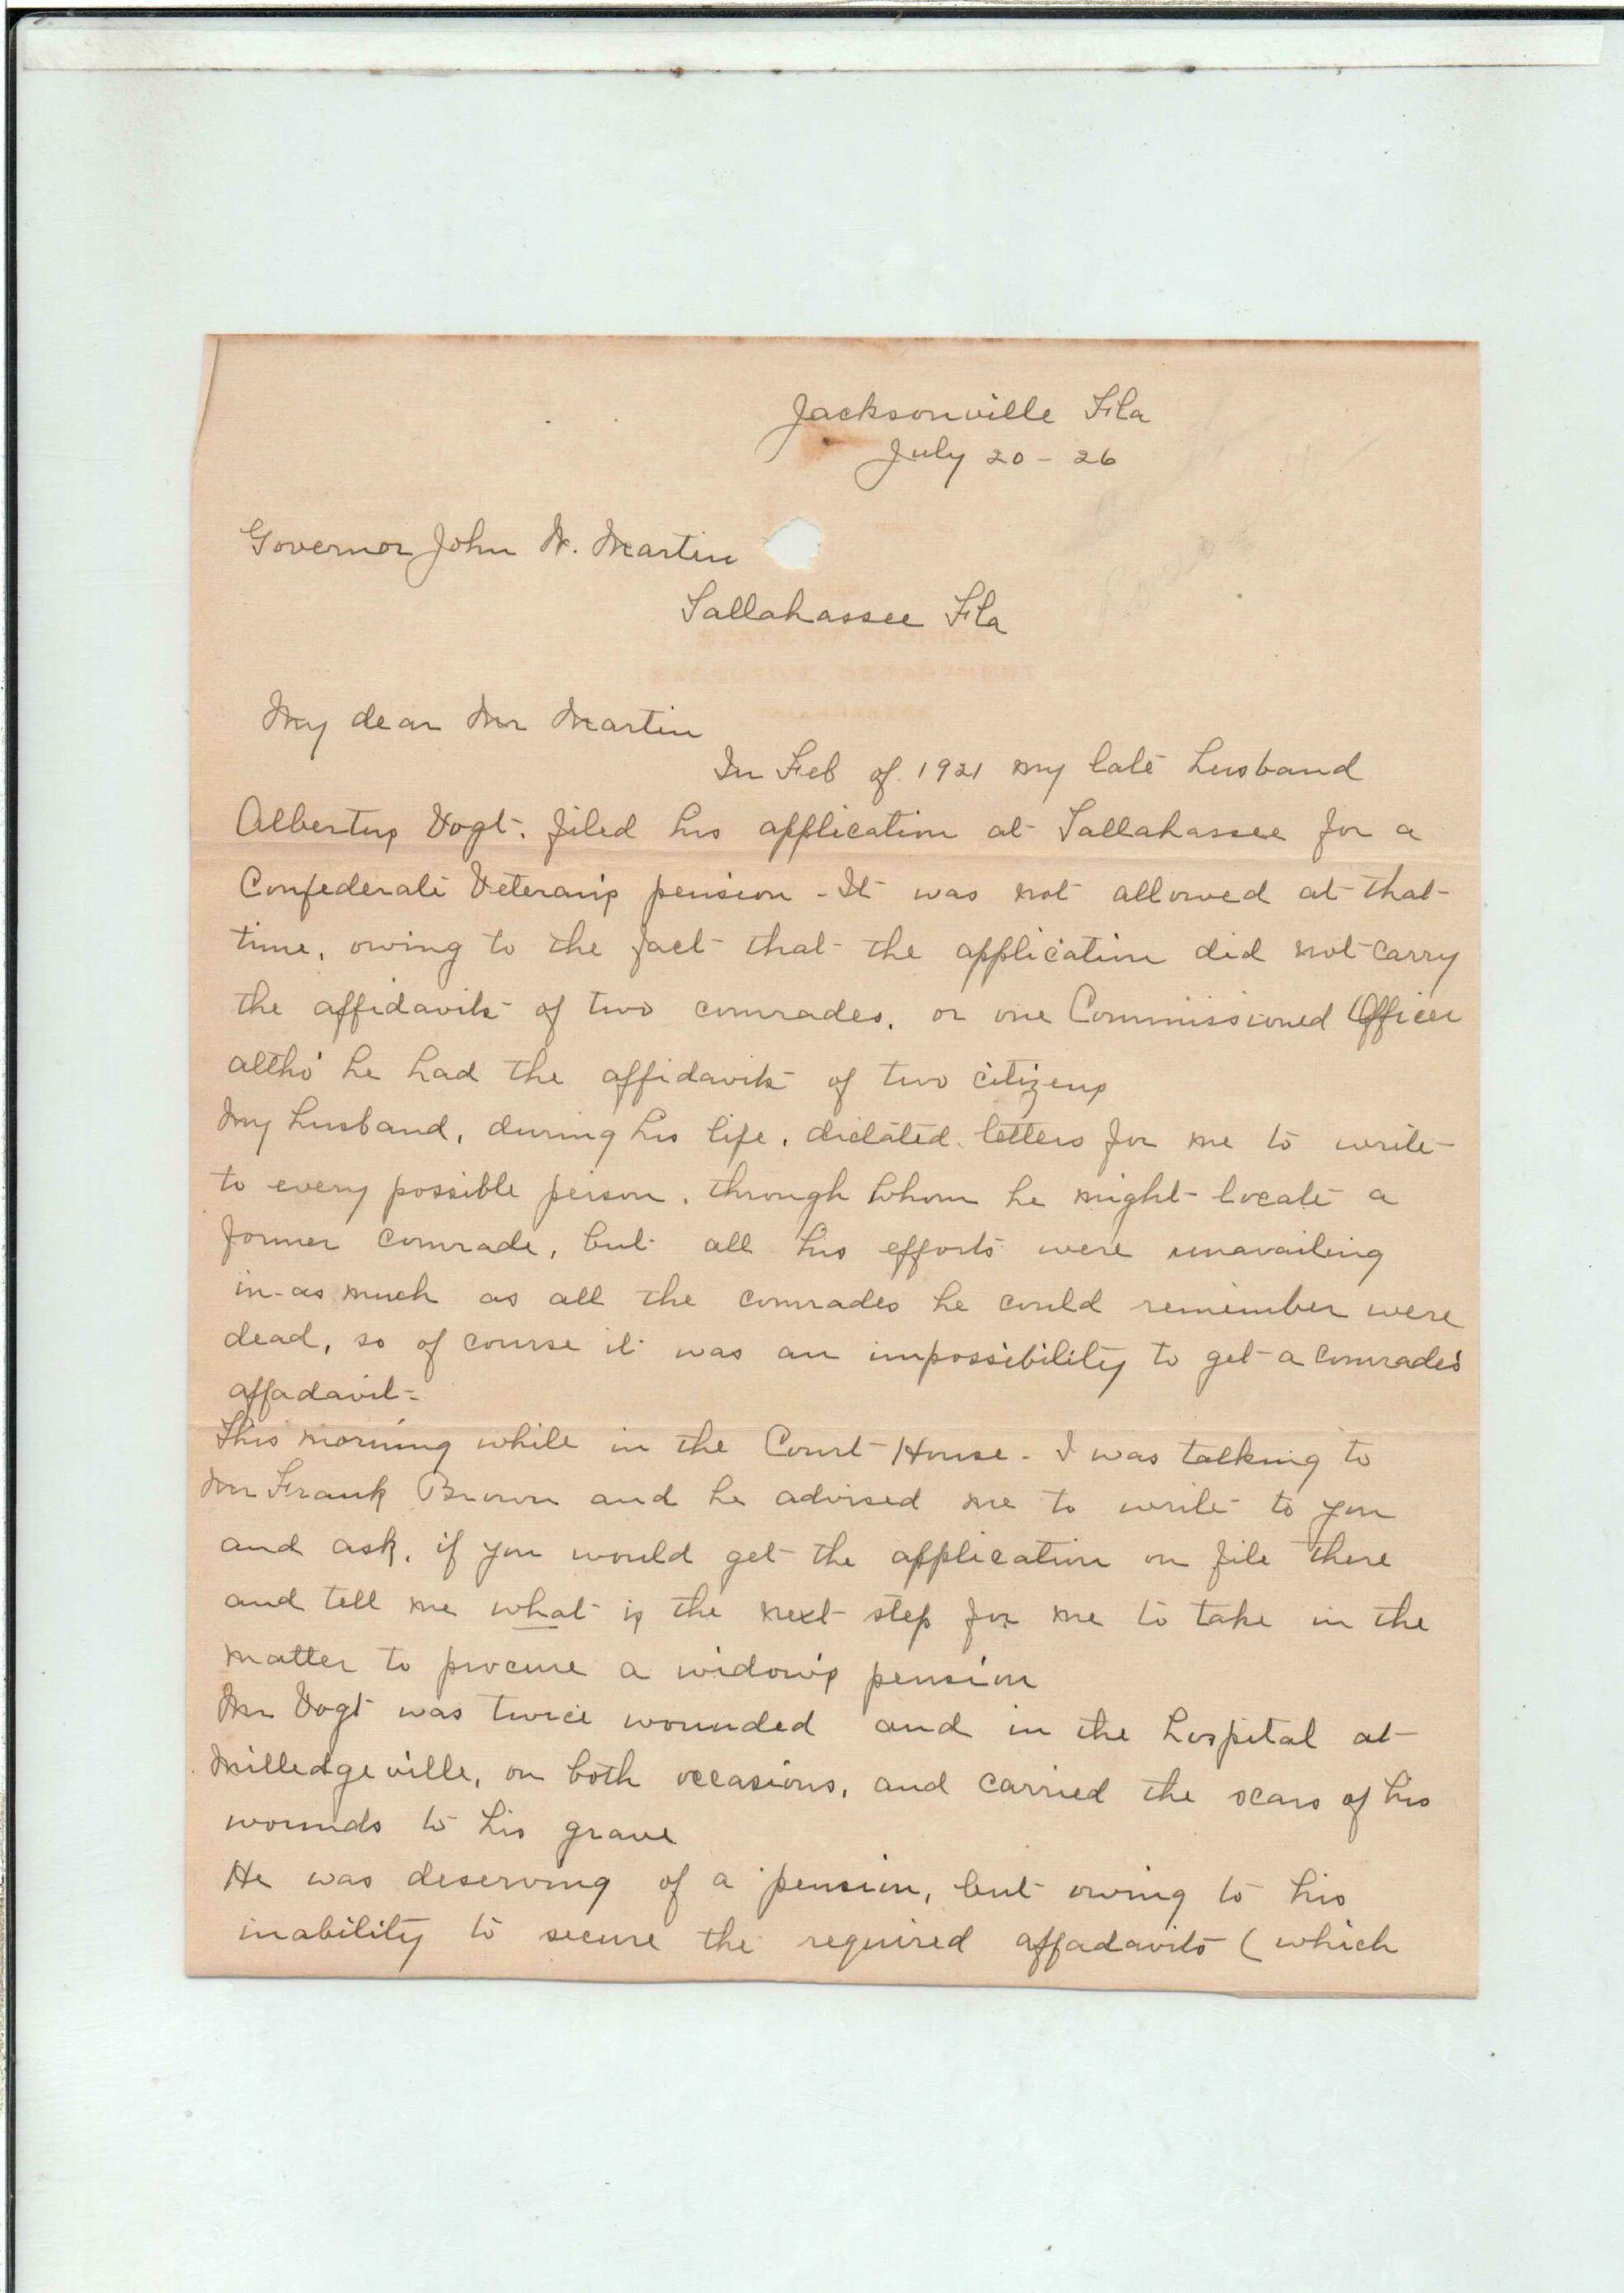 Jacksonville Fla
July 20 - 26
Governor John W. Martin
Tallahassee Fla
My dear Mr Martin
In Feb of 1921 my late husband
Albertus Vogt. filed his application at Tallahassee for a
Confederate Veteran's pension - It was not allowed at that
time, owing to the fact that the application did not carry
the affidavits of two comrades, or one Commissioned Officer
altho' he had the affidavits of two citizens
My husband, during his life, dictated letters for me to write
to every possible person, through whom he might locate a
former comrade, but all his efforts were unavailing
in-as much as all the comrades he could remember were
dead, so of course it was an impossibility to get a comrade's
affadavit-
This morning while in the Court House - I was talking to
Mr Frank Brown and he advised me to write to you
and ask, if you would get the application on file there
and tell me what is the next step for me to take in the
matter to procure a widow's pension
Mr Vogt was twice wounded and in the hospital at
Milledgeville, on both occasions, and carried the scars of his
wounds to his grave
He was deserving of a pension, but owing to his
inability to secure the required affadavits (which